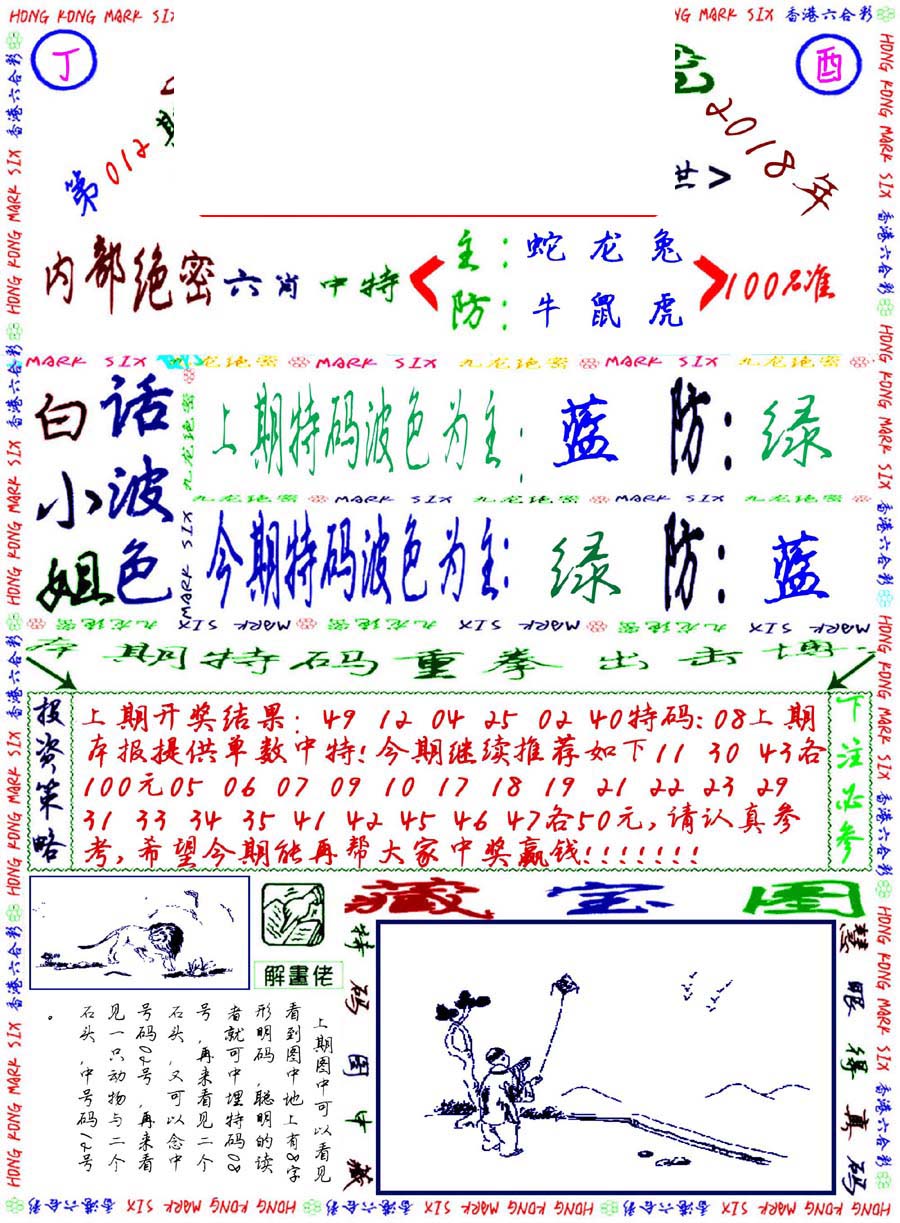 HONG KONG MARK SIX 香港六合彩
丁
酉
第012期
2018年
内部绝密六肖中特
主：蛇龙兔
防：牛鼠虎
100%准
MARK SIX 九龙绝密 MARK SIX 九龙绝密 MARK SIX 九龙绝密
白话
小波
姐色
上期特码波色为主：蓝 防：绿
九龙绝密 MARK SIX 九龙绝密 MARK SIX 九龙绝密
今期特码波色为主：绿 防：蓝
期特码重拳出击
投资策略
上期开奖结果：49 12 04 25 02 40特码:08上期
本报提供单数中特!今期继续推荐如下11 30 43各
100元05 06 07 09 10 17 18 19 21 22 23 29
31 33 34 35 41 42 45 46 47各50元,请认真参
考,希望今期能再帮大家中奖赢钱!!!!!!!
下注必参
解畫佬
藏宝图
特码图中藏
慧眼得真码
上期图中可以看见
看到图中地上有8字
形明码，聪明的读
者就可中埋特码08
号，再来看见二个
石头，又可以念中
号码02号，再来看
见一只动物与二个
石头，中号码12号
。
HONG KONG MARK SIX 香港六合彩